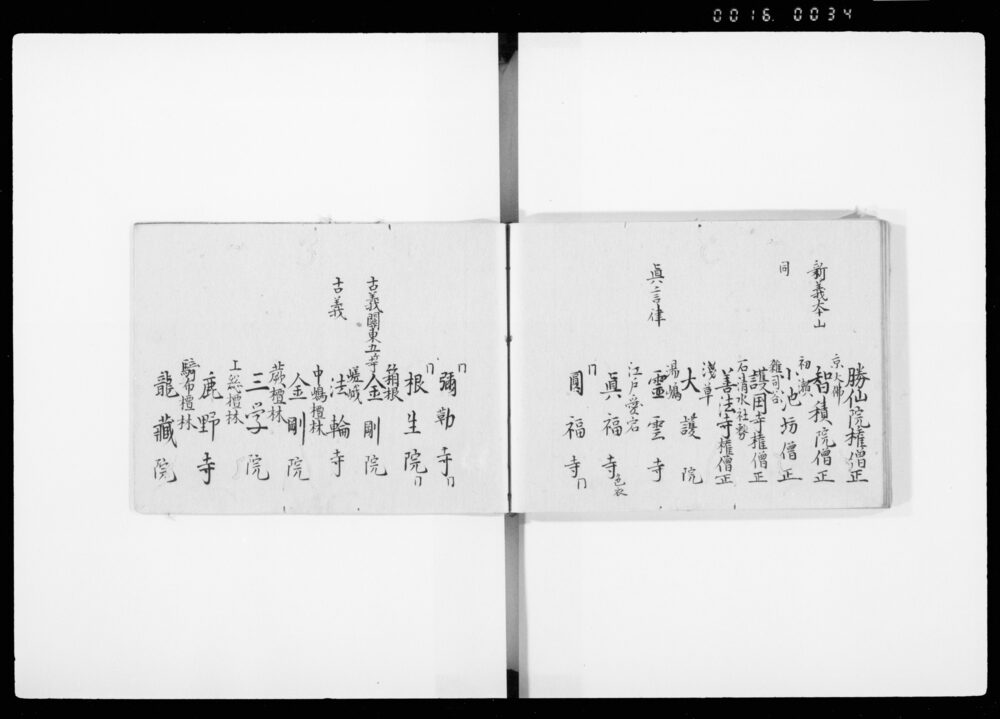 0016. 0034
勝仙院権僧正
新義本山
京大佛
智積院僧正
同
初瀬
小池坊僧正
雑司谷
護国寺権僧正
石清水社務
善法寺権僧正
浅草
大護院
湯嶋
眞言律
靈雲寺
江戸愛宕
眞福寺色衣
圓福寺
彌勒寺
根生院
箱根
古義關東五ヶ寺
金剛院
嵯峨
古義
法輪寺
中嶋檀林
金剛院
蕨檀林
三学院
上総檀林
鹿野寺
騎西檀林
龍藏院